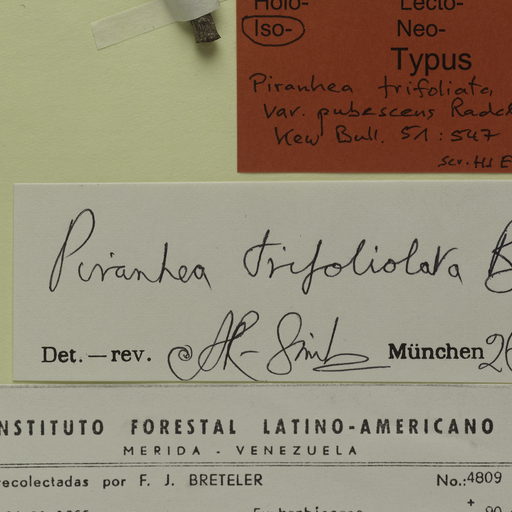 Holo- Lecto-
Iso- Neo-
Typus
Piranhea trifoliata,
var. pubescens Radcl
Kew Bull. 51: 547
scr. HJ E
Piranhea trifoliolata B
Det. — rev. München 26
INSTITUTO FORESTAL LATINO-AMERICANO
MERIDA - VENEZUELA
recolectadas por F. J. BRETELER No.: 4809
+ 90